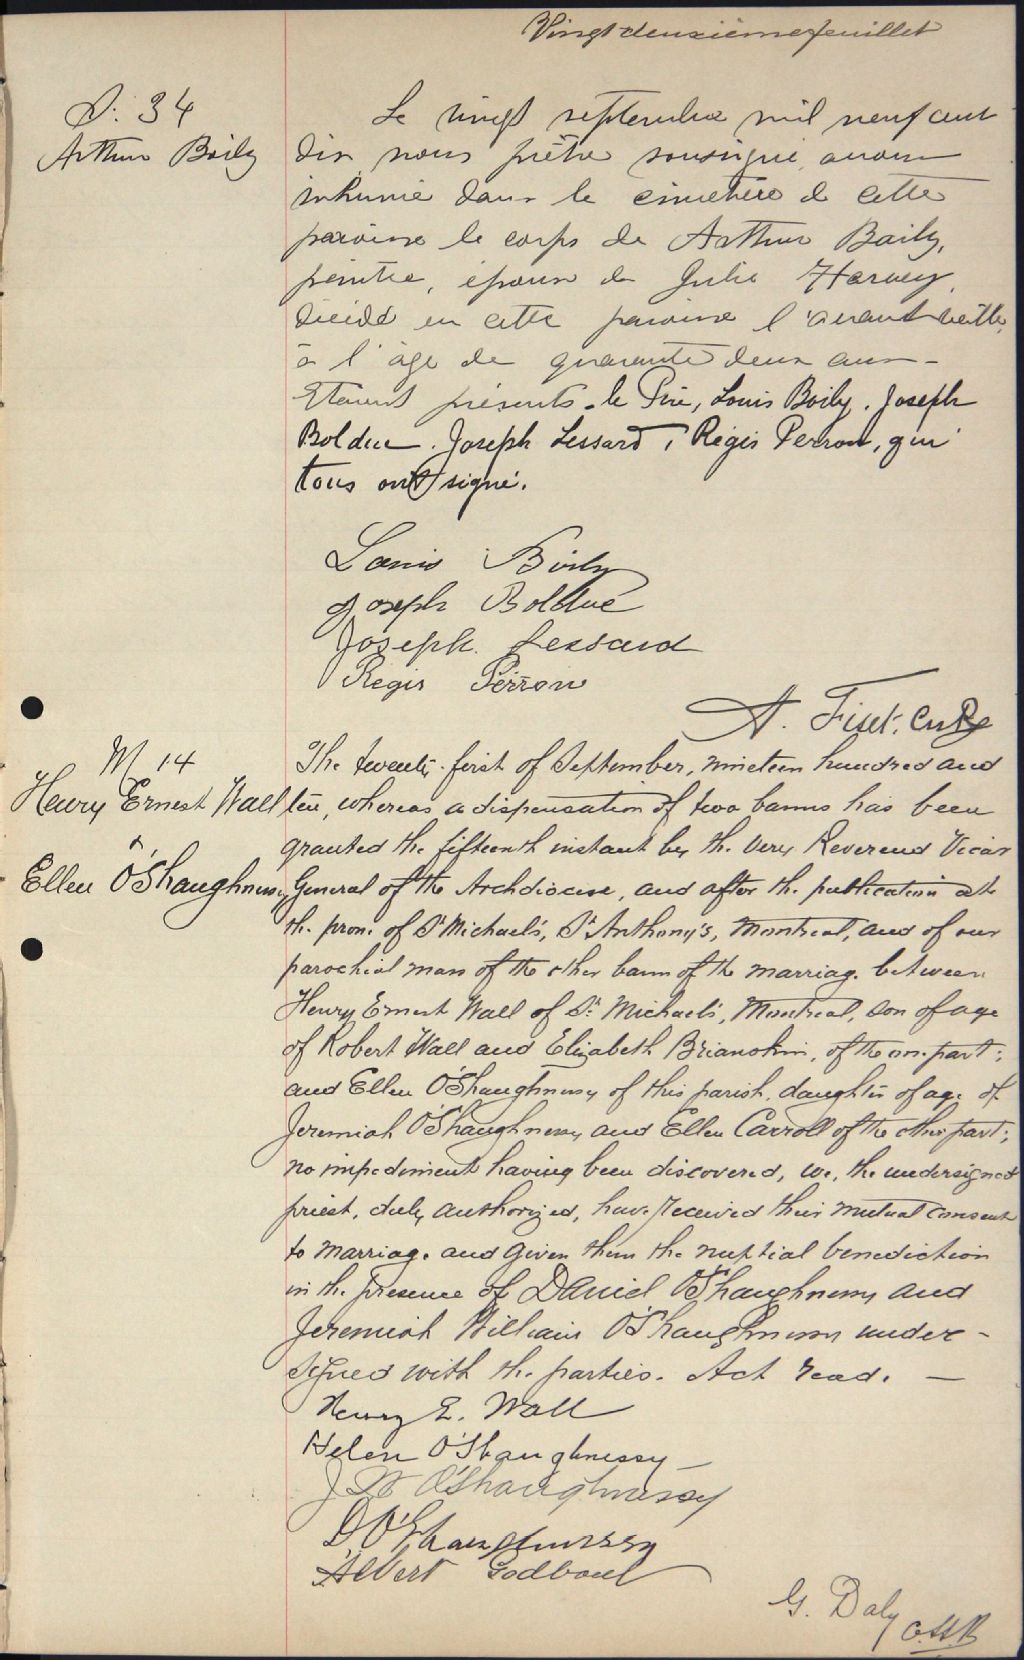 Vingt deuxième feuillet
S. 34
Arthur Boily
Le vingt septembre mil neuf cent
dix nous prêtre soussigné avons
inhumé dans le cimetière de cette
paroisse le corps de Arthur Boily,
peintre, époux de Julie Harvey,
décédé en cette paroisse l'avant veille,
à l'âge de quarante deux ans -
Etaient présents - le Père, Louis Boily, Joseph
Bolduc, Joseph Lessard, Régis Perron, qui
tous ont signé.
Louis Boily
Joseph Bolduc
Joseph Lessard
Régis Perron
A. Fiset, Curé
M 14
Henry Ernest Wall
&
Ellen O'Shaughnessy
The twenty-first of September, nineteen hundred and
ten, whereas a dispensation of two banns has been
granted the fifteenth instant by the Very Reverend Vicar
General of the Archdiocese, and after the publication at
the prone of St Michael's, St Anthony's, Montreal, and of our
parochial mass of the other bann of the marriage between
Henry Ernest Wall of St. Michael's, Montreal, son of age
of Robert Wall and Elizabeth, of the one part;
and Ellen O'Shaughnessy of this parish, daughter of age of
Jeremiah O'Shaughnessy and Ellen Carroll of the other part;
no impediment having been discovered, we, the undersigned
priest, duly authorized, have received their mutual consent
to marriage and given them the nuptial benediction
in the presence of Daniel O'Shaughnessy and
Jeremiah William O'Shaughnessy under-
signed with the parties. Act read. -
Henry E. Wall
Helen O'Shaughnessy
J W O'Shaughnessy
D O'Shaughnessy
Albert Godbout
G. Daly C.SS.R